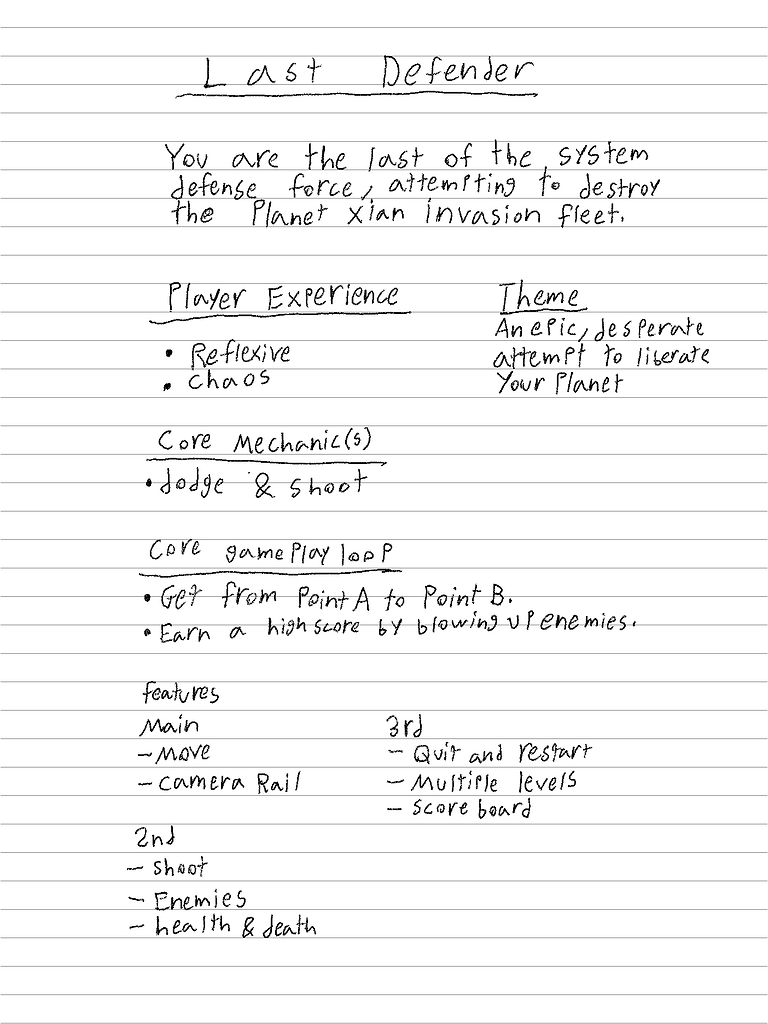 Last Defender
You are the last of the system
defense force, attempting to destroy
the Planet Xian invasion fleet.
Player Experience
• Reflexive
• Chaos
Theme
An epic, desperate
attempt to liberate
Your Planet
Core Mechanic(s)
• dodge & shoot
Core gameplay loop
• Get from Point A to Point B.
• Earn a high score by blowing up enemies.
features
Main
- Move
- Camera Rail
2nd
- Shoot
- Enemies
- health & death
3rd
- Quit and restart
- Multiple levels
- Score board